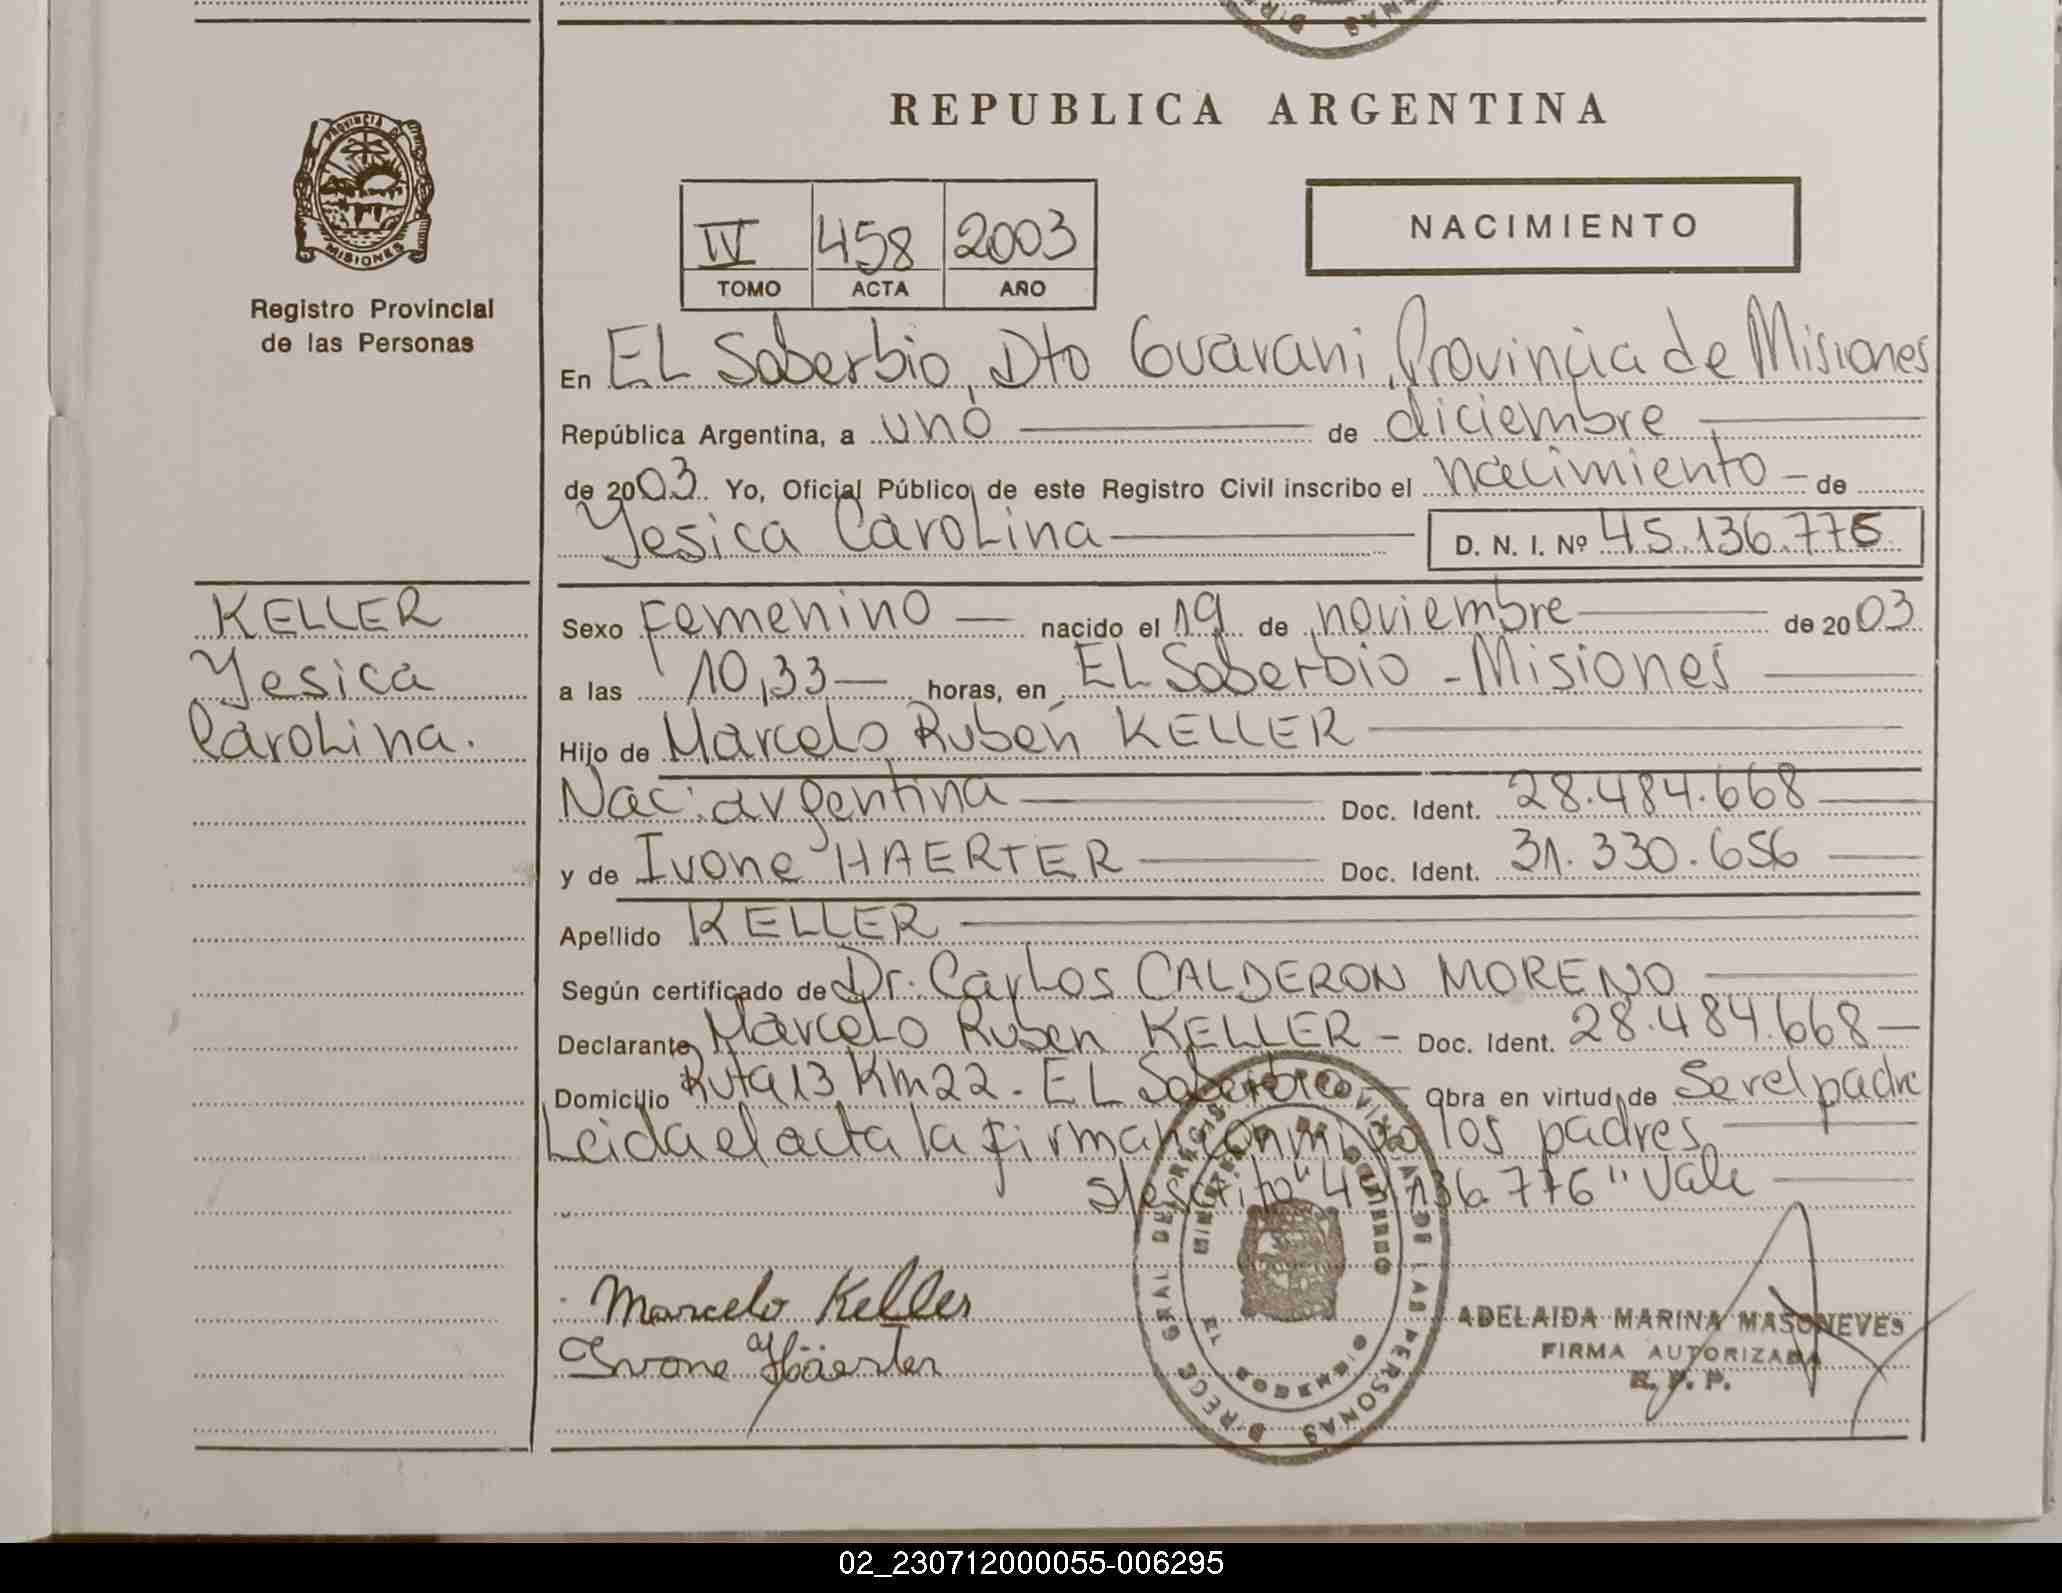 REPUBLICA ARGENTINA
PROVINCIA DE
MISIONES
Registro Provincial
de las Personas
IV 458 2003
TOMO ACTA AÑO
NACIMIENTO
En EL Soberbio, Dto Guarani, Provincia de Misiones
República Argentina, a uno de diciembre
de 2003. Yo, Oficial Público de este Registro Civil inscribo el nacimiento de
Yesica Carolina D. N. I. Nº 45.136.776
KELLER
Yesica
Carolina.
Sexo Femenino nacido el 19 de noviembre de 2003
a las 10,33 horas, en EL Soberbio - Misiones
Hijo de Marcelo Rubén KELLER
Nac: argentina Doc. Ident. 28.484.668
y de Ivone HAERTER Doc. Ident. 31.330.656
Apellido KELLER
Según certificado de Dr. Carlos CALDERON MORENO
Declarante Marcelo Ruben KELLER - Doc. Ident. 28.484.668
Domicilio Ruta 13 Km 22 - EL Soberbio Obra en virtud de Ser el padre
Leida el acta la firman conmigo los padres
s/escrito "45.136.776" Vale
Marcelo Keller
Ivone Häerter
ADELAIDA MARINA MASONEVES
FIRMA AUTORIZADA
R. P. P.
02_230712000055-006295